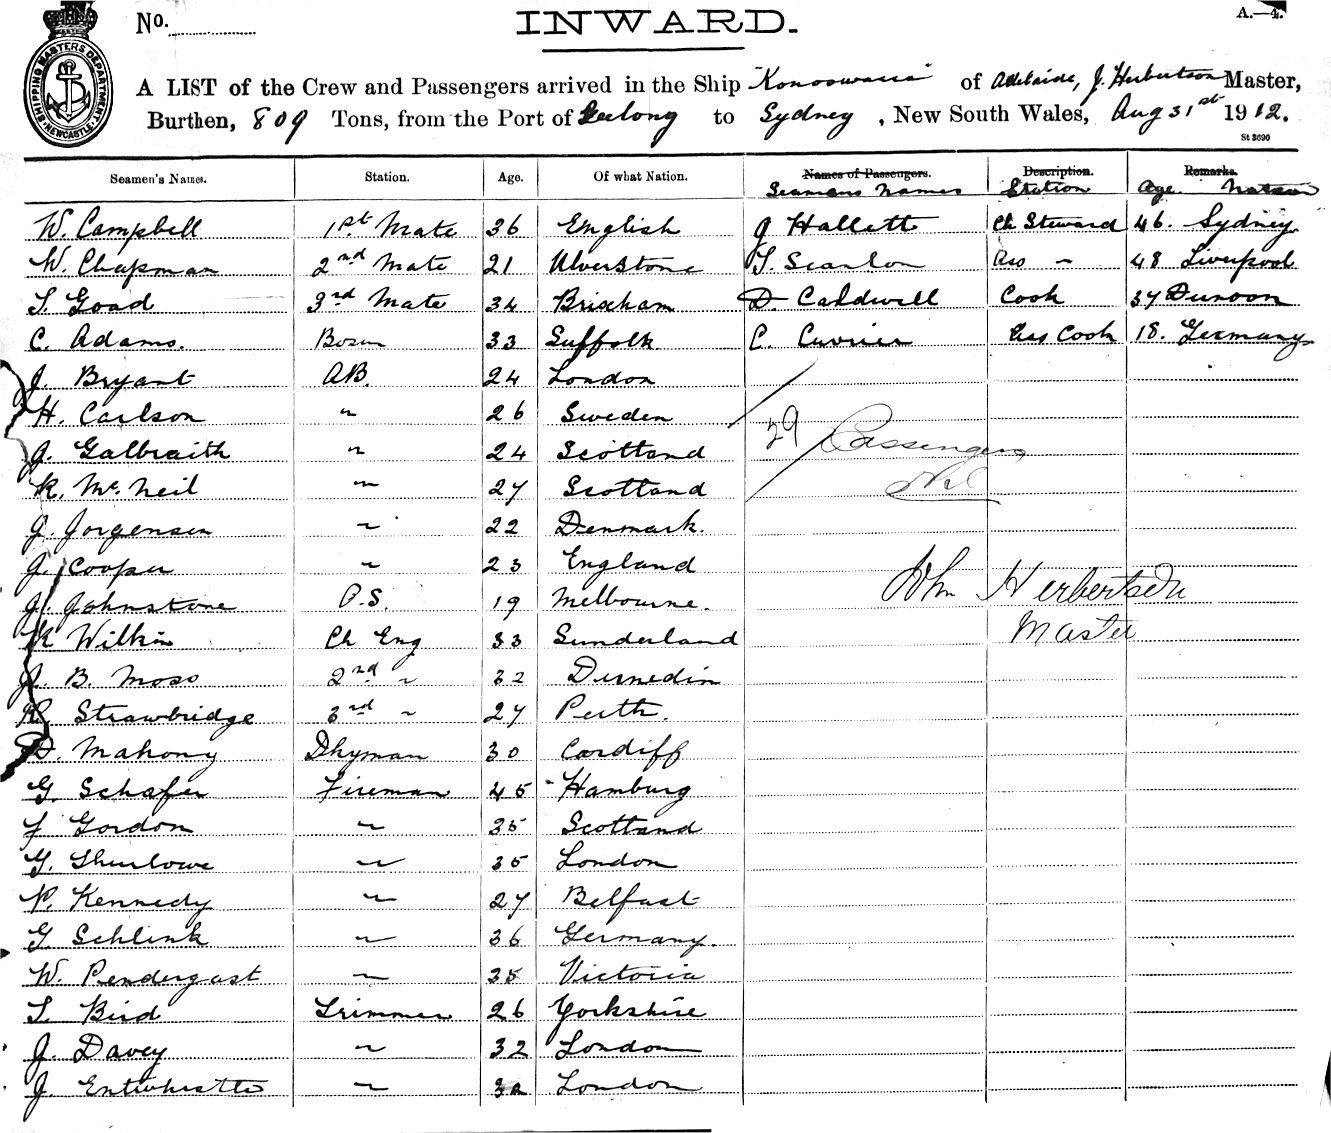 No. INWARD. A.—4.
SHIPPING MASTERS DEPARTMENT NEWCASTLE
A LIST of the Crew and Passengers arrived in the Ship "Konoowarra" of Adelaide, J. Herbertson Master,
Burthen, 809 Tons, from the Port of Geelong to Sydney, New South Wales, Aug 31st 1912.
St 3690
Seamen's Names. Station. Age. Of what Nation. Names of Passengers. Description. Remarks.
Seamans Names Station Age. Nation
W. Campbell 1st Mate 36 English J Hallett Ch Steward 46. Sydney
W. Chapman 2nd Mate 21 Ulverstone T. Scanlon Ass ~ 48 Liverpool
T. Goad 3rd Mate 34 Brixham D. Caldwell Cook 37 Dunoon
C. Adams. Bosun 33 Suffolk C. Cuvrier Ass Cook 18. Germany
J. Bryant AB. 24 London
H. Carlson ~ 26 Sweden
J. Galbraith ~ 24 Scotland 29 Passengers
R. McNeil ~ 27 Scotland Nil
J. Jorgensen ~ 22 Denmark.
J. Cooper ~ 23 England John Herbertson
J. Johnstone O.S. 19 Melbourne. Master
R Wilkin Ch Eng 33 Sunderland
J. B. Moss 2nd ~ 32 Dunedin
R. Strawbridge 3rd ~ 27 Perth.
D. Mahony Dkyman 30 Cardiff
G. Schafer Fireman 45 Hamburg
J Gordon ~ 35 Scotland
G. Thurlowe ~ 35 London
P. Kennedy ~ 27 Belfast
G. Schlink ~ 36 Germany.
W. Pendergast ~ 35 Victoria
T. Bird Trimmer 26 Yorkshire
J. Davey ~ 32 London
J. Entwhistle ~ London